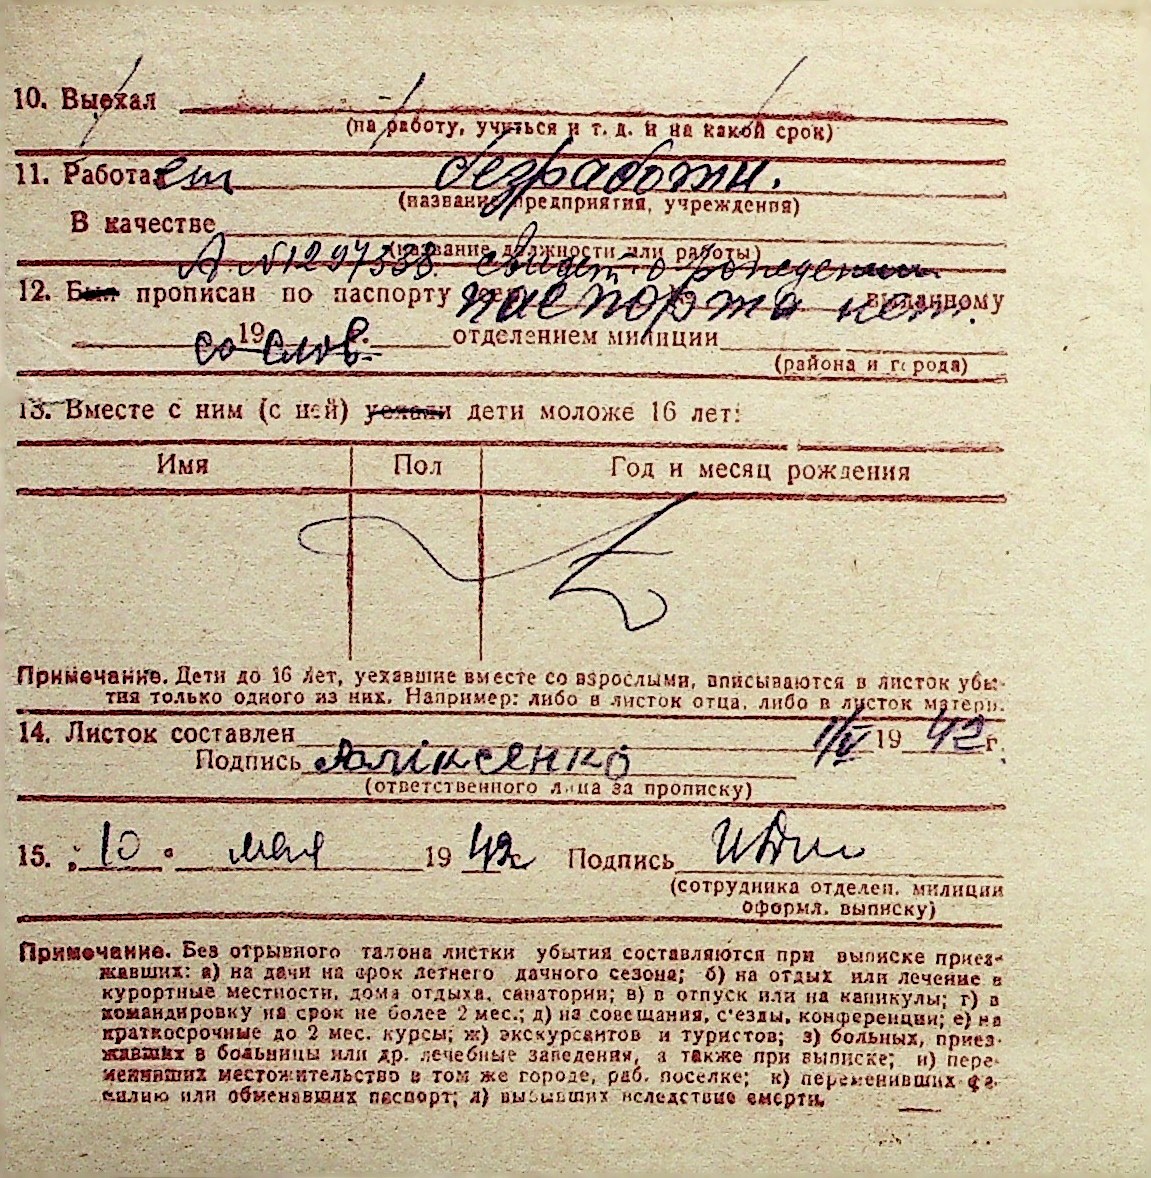 10. Выехал
(на работу, учиться и т. д. и на какой срок)
11. Работает безработн.
(название предприятия, учреждения)
В качестве
(название должности или работы)
А. № 1297338 свидет. о рождении
12. Был прописан по паспорту сер. паспорта нет. выданному
19 г. отделением милиции
со слов.
(района и города)
13. Вместе с ним (с ней) уехали дети моложе 16 лет:
Имя Пол Год и месяц рождения
Примечание. Дети до 16 лет, уехавшие вместе со взрослыми, вписываются в листок убы-
тия только одного из них. Например: либо в листок отца, либо в листок матери.
14. Листок составлен 1/V 19 42 г.
Подпись
(ответственного лица за прописку)
15. „ 10 “ мая 19 42 г. Подпись
(сотрудника отделен. милиции
оформл. выписку)
Примечание. Без отрывного талона листки убытия составляются при выписке приез-
жавших: а) на дачи на срок летнего дачного сезона; б) на отдых или лечение в
курортные местности, дома отдыха, санатории; в) в отпуск или на каникулы; г) в
командировку на срок не более 2 мес.; д) на совещания, с'езды, конференции; е) на
краткосрочные до 2 мес. курсы; ж) экскурсантов и туристов; з) больных, приез-
жавших в больницы или др. лечебные заведения, а также при выписке; и) пере-
менивших местожительство в том же городе, раб. поселке; к) переменивших фа-
милию или обменявших паспорт; л) выбывших вследствие смерти.